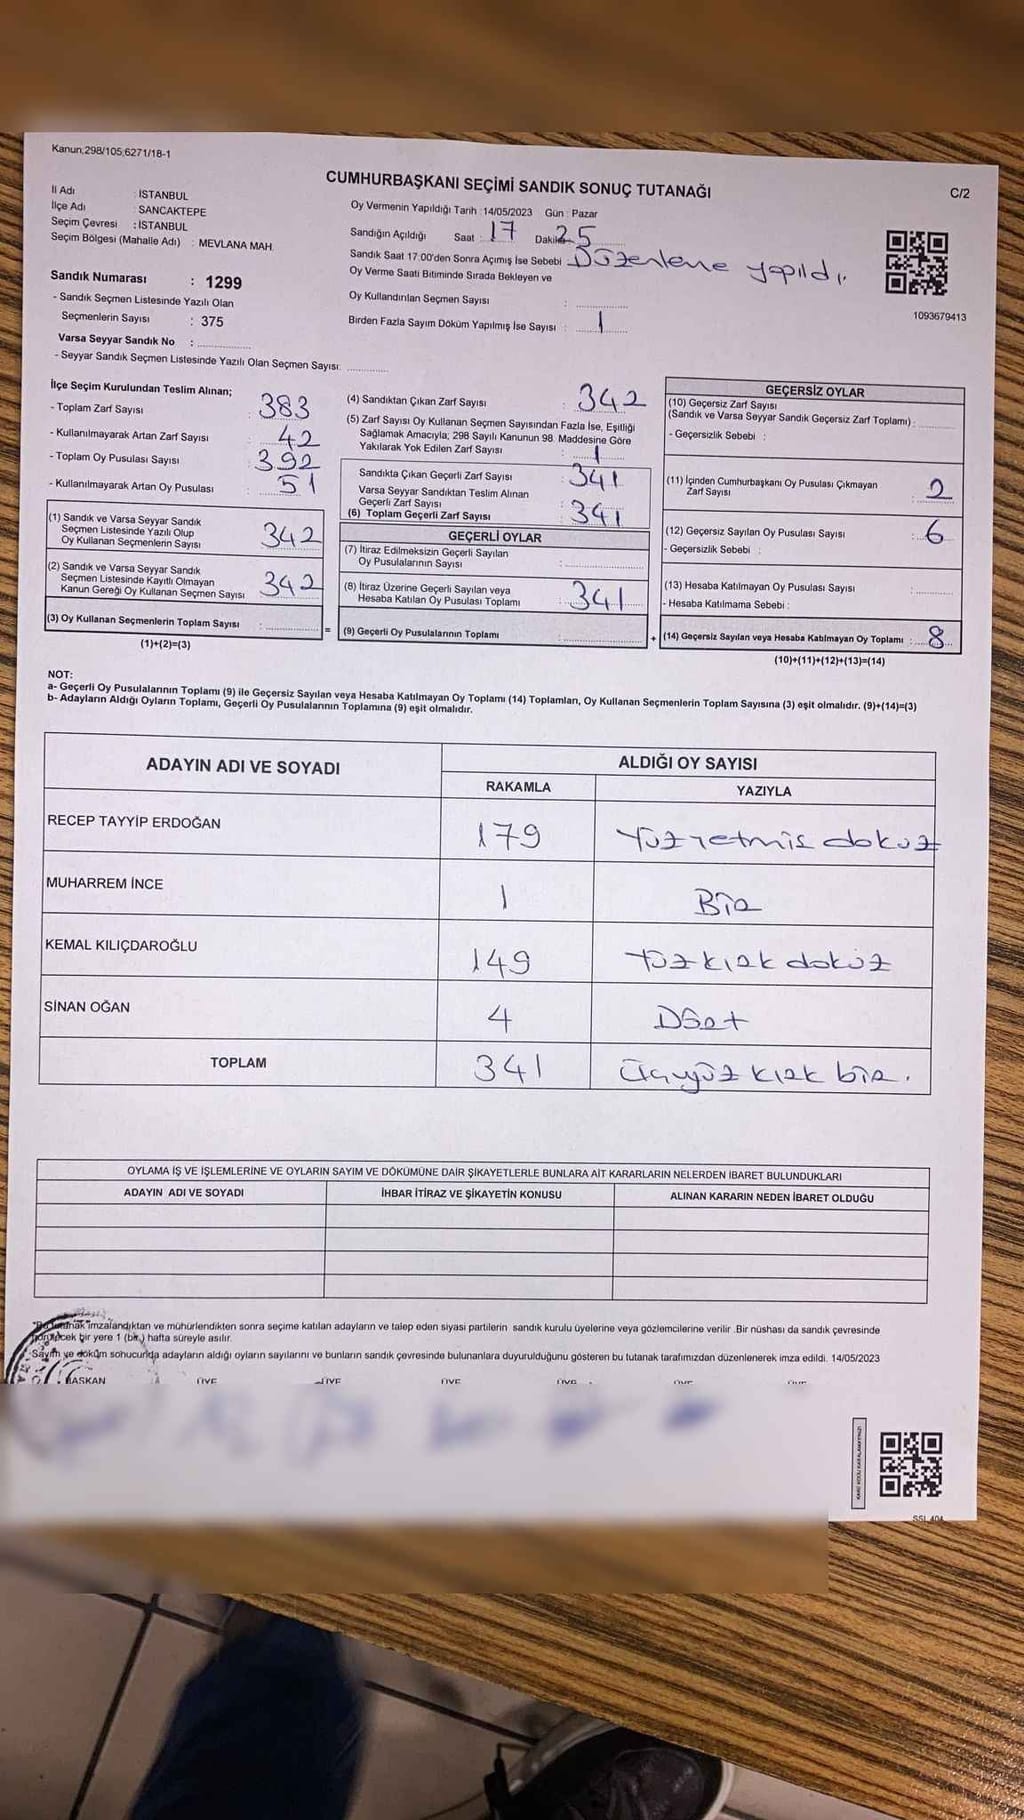 Kanun;298/105;6271/18-1
CUMHURBAŞKANI SEÇİMİ SANDIK SONUÇ TUTANAĞI
C/2
İl Adı : İSTANBUL
İlçe Adı : SANCAKTEPE
Seçim Çevresi : İSTANBUL
Seçim Bölgesi (Mahalle Adı) : MEVLANA MAH.
Oy Vermenin Yapıldığı Tarih :14/05/2023 Gün : Pazar
Sandığın Açıldığı Saat : 17 Dakika 25
Sandık Saat 17:00'den Sonra Açımış İse Sebebi : Düzenleme yapıldı.
Oy Verme Saati Bitiminde Sırada Bekleyen ve
Oy Kullandırılan Seçmen Sayısı :
Birden Fazla Sayım Döküm Yapılmış İse Sayısı : 1
1093679413
Sandık Numarası : 1299
- Sandık Seçmen Listesinde Yazılı Olan
Seçmenlerin Sayısı : 375
Varsa Seyyar Sandık No :
- Seyyar Sandık Seçmen Listesinde Yazılı Olan Seçmen Sayısı:
İlçe Seçim Kurulundan Teslim Alınan;
- Toplam Zarf Sayısı : 383
- Kullanılmayarak Artan Zarf Sayısı : 42
- Toplam Oy Pusulası Sayısı : 392
- Kullanılmayarak Artan Oy Pusulası : 51
(1) Sandık ve Varsa Seyyar Sandık
Seçmen Listesinde Yazılı Olup
Oy Kullanan Seçmenlerin Sayısı : 342
(2) Sandık ve Varsa Seyyar Sandık
Seçmen Listesinde Kayıtlı Olmayan
Kanun Gereği Oy Kullanan Seçmen Sayısı : 342
(3) Oy Kullanan Seçmenlerin Toplam Sayısı :
(1)+(2)=(3)
(4) Sandıktan Çıkan Zarf Sayısı : 342
(5) Zarf Sayısı Oy Kullanan Seçmen Sayısından Fazla İse, Eşitliği
Sağlamak Amacıyla; 298 Sayılı Kanunun 98. Maddesine Göre
Yakılarak Yok Edilen Zarf Sayısı : 1
Sandıkta Çıkan Geçerli Zarf Sayısı : 341
Varsa Seyyar Sandıktan Teslim Alınan
Geçerli Zarf Sayısı :
(6) Toplam Geçerli Zarf Sayısı : 341
GEÇERLİ OYLAR
(7) İtiraz Edilmeksizin Geçerli Sayılan
Oy Pusulalarının Sayısı :
(8) İtiraz Üzerine Geçerli Sayılan veya
Hesaba Katılan Oy Pusulası Toplamı : 341
= (9) Geçerli Oy Pusulalarının Toplamı :
GEÇERSİZ OYLAR
(10) Geçersiz Zarf Sayısı
(Sandık ve Varsa Seyyar Sandık Geçersiz Zarf Toplamı) :
- Geçersizlik Sebebi :
(11) İçinden Cumhurbaşkanı Oy Pusulası Çıkmayan
Zarf Sayısı : 2
(12) Geçersiz Sayılan Oy Pusulası Sayısı : 6
- Geçersizlik Sebebi :
(13) Hesaba Katılmayan Oy Pusulası Sayısı :
- Hesaba Katılmama Sebebi :
+ (14) Geçersiz Sayılan veya Hesaba Katılmayan Oy Toplamı : 8
(10)+(11)+(12)+(13)=(14)
NOT:
a- Geçerli Oy Pusulalarının Toplamı (9) ile Geçersiz Sayılan veya Hesaba Katılmayan Oy Toplamı (14) Toplamları, Oy Kullanan Seçmenlerin Toplam Sayısına (3) eşit olmalıdır. (9)+(14)=(3)
b- Adayların Aldığı Oyların Toplamı, Geçerli Oy Pusulalarının Toplamına (9) eşit olmalıdır.
ADAYIN ADI VE SOYADI
ALDIĞI OY SAYISI
RAKAMLA YAZIYLA
RECEP TAYYİP ERDOĞAN 179 Yüzyetmiş dokuz
MUHARREM İNCE 1 Bir
KEMAL KILIÇDAROĞLU 149 Yüz kırk dokuz
SİNAN OĞAN 4 Dört
TOPLAM 341 Üçyüz kırk bir.
OYLAMA İŞ VE İŞLEMLERİNE VE OYLARIN SAYIM VE DÖKÜMÜNE DAİR ŞİKAYETLERLE BUNLARA AİT KARARLARIN NELERDEN İBARET BULUNDUKLARI
ADAYIN ADI VE SOYADI İHBAR İTİRAZ VE ŞİKAYETİN KONUSU ALINAN KARARIN NEDEN İBARET OLDUĞU
imzalandıktan ve mühürlendikten sonra seçime katılan adayların ve talep eden siyasi partilerin sandık kurulu üyelerine veya gözlemcilerine verilir .Bir nüshası da sandık çevresinde
görülecek bir yere 1 (bir) hafta süreyle asılır.
Sayım ve döküm sonucunda adayların aldığı oyların sayılarını ve bunların sandık çevresinde bulunanlara duyurulduğunu gösteren bu tutanak tarafımızdan düzenlenerek imza edildi. 14/05/2023
BAŞKAN ÜYE ÜYE ÜYE ÜYE